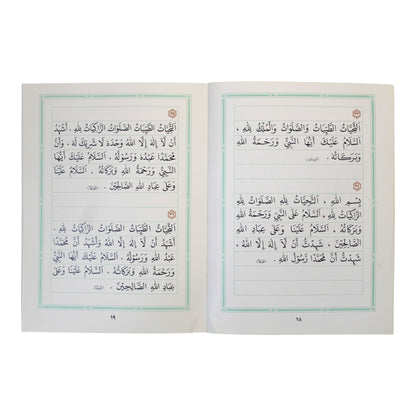 اَلتَّحِيَّاتُ الطَّيِّبَاتُ وَالصَّلَوَاتُ وَالْمُلْكُ لِلّٰهِ ،
اَلسَّلَامُ عَلَيْكَ أَيُّهَا النَّبِيُّ وَرَحْمَةُ اللهِ
وَبَرَكَاتُهُ .
بِسْمِ اللهِ ، اَلتَّحِيَّاتُ لِلّٰهِ ، الصَّلَوَاتُ لِلّٰهِ ،
الزَّاكِيَاتُ لِلّٰهِ ، اَلسَّلَامُ عَلَى النَّبِيِّ وَرَحْمَةُ اللهِ
وَبَرَكَاتُهُ ، اَلسَّلَامُ عَلَيْنَا وَعَلَى عِبَادِ اللهِ
الصَّالِحِيْنَ ، شَهِدْتُ أَنْ لَا إِلٰهَ إِلَّا اللهُ ،
شَهِدْتُ أَنَّ مُحَمَّدًا رَسُوْلُ اللهِ . (الموطأ)
١٨
اَلتَّحِيَّاتُ الطَّيِّبَاتُ الصَّلَوَاتُ الزَّاكِيَاتُ لِلّٰهِ ، أَشْهَدُ
أَنْ لَا إِلٰهَ إِلَّا اللهُ وَحْدَهُ لَا شَرِيْكَ لَهُ ، وَأَنَّ
مُحَمَّدًا عَبْدُهُ وَرَسُوْلُهُ ، اَلسَّلَامُ عَلَيْكَ أَيُّهَا
النَّبِيُّ وَرَحْمَةُ اللهِ وَبَرَكَاتُهُ ، اَلسَّلَامُ عَلَيْنَا
وَعَلَى عِبَادِ اللهِ الصَّالِحِيْنَ . (الموطأ)
اَلتَّحِيَّاتُ الطَّيِّبَاتُ الصَّلَوَاتُ الزَّاكِيَاتُ لِلّٰهِ ،
أَشْهَدُ أَنْ لَا إِلٰهَ إِلَّا اللهُ وَأَشْهَدُ أَنَّ مُحَمَّدًا
عَبْدُ اللهِ وَرَسُوْلُهُ ، اَلسَّلَامُ عَلَيْكَ أَيُّهَا النَّبِيُّ
وَرَحْمَةُ اللهِ وَبَرَكَاتُهُ ، اَلسَّلَامُ عَلَيْنَا وَعَلَى
عِبَادِ اللهِ الصَّالِحِيْنَ . (الموطأ)
١٩